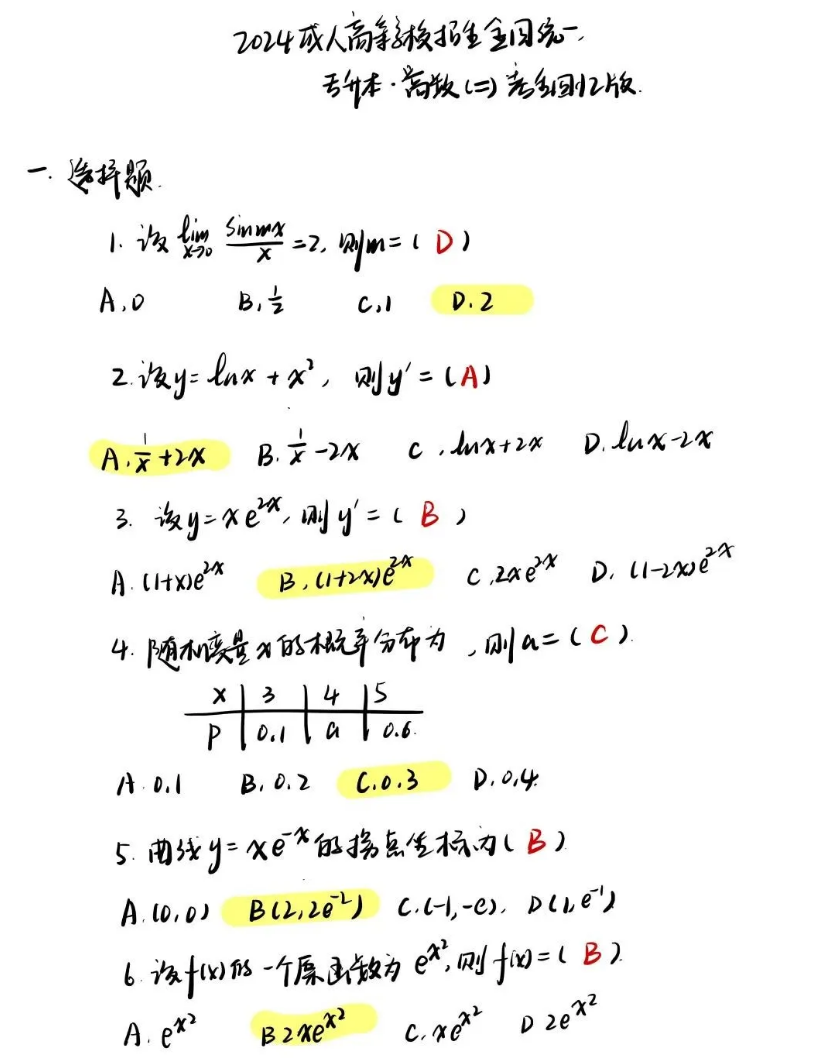 2024成人高等学校招生全国统一
专升本·高数(二)考生回忆版.
一. 选择题.
1. 设 lim x→0 sinmx/x =2, 则m=( D )
A.0 B.1/2 C.1 D.2
2.设y=lnx+x², 则y′=(A)
A.1/x+2x B.1/x-2x C.lnx+2x D.lnx-2x
3. 设y=xe^{2x}, 则y′=( B )
A.(1+x)e^{2x} B.(1+2x)e^{2x} C.2xe^{2x} D.(1-2x)e^{2x}
4. 随机变量x的概率分布为 ,则a=( C ).
X 3 4 5
P 0.1 a 0.6
A.0.1 B.0.2 C.0.3 D.0.4
5. 曲线y=xe^{-x}的拐点坐标为( B )
A.(0,0) B(2,2e^{-2}) C.(-1,-e). D(1,e^{-1})
6.设f(x)的一个原函数为e^{x²},则f(x)=( B ).
A.e^{x²} B 2xe^{x²} C.xe^{x²} D 2e^{x²}